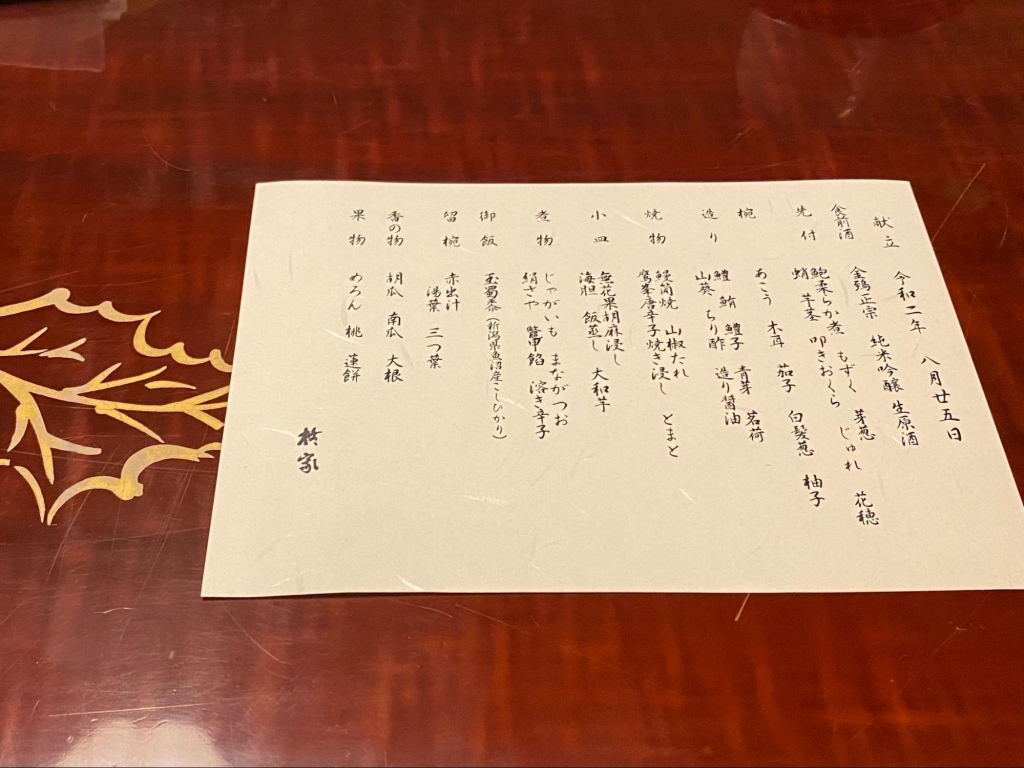 献立　令和二年　八月廿五日
食前酒　金鵄正宗　純米吟醸　生原酒
先付　鮑柔らか煮　もずく　芽葱　じゅれ　花穂
蛸　芋茎　叩きおくら
椀　あこう　木耳　茄子　白髪葱　柚子
造り　鱧　鮪　鱧子　青芽　茗荷
山葵　ちり酢　造り醤油
焼物　鰻筒焼　山椒たれ
鷹峯唐辛子焼き浸し　とまと
小皿　無花果胡麻浸し
海胆　飯蒸し　大和芋
煮物　じゃがいも　まながつお
絹さや　鼈甲餡　溶き辛子
御飯　玉蜀黍（新潟県魚沼産こしひかり）
留椀　赤出汁
湯葉　三つ葉
香の物　胡瓜　南瓜　大根
果物　めろん　桃　蓮餅
柊家